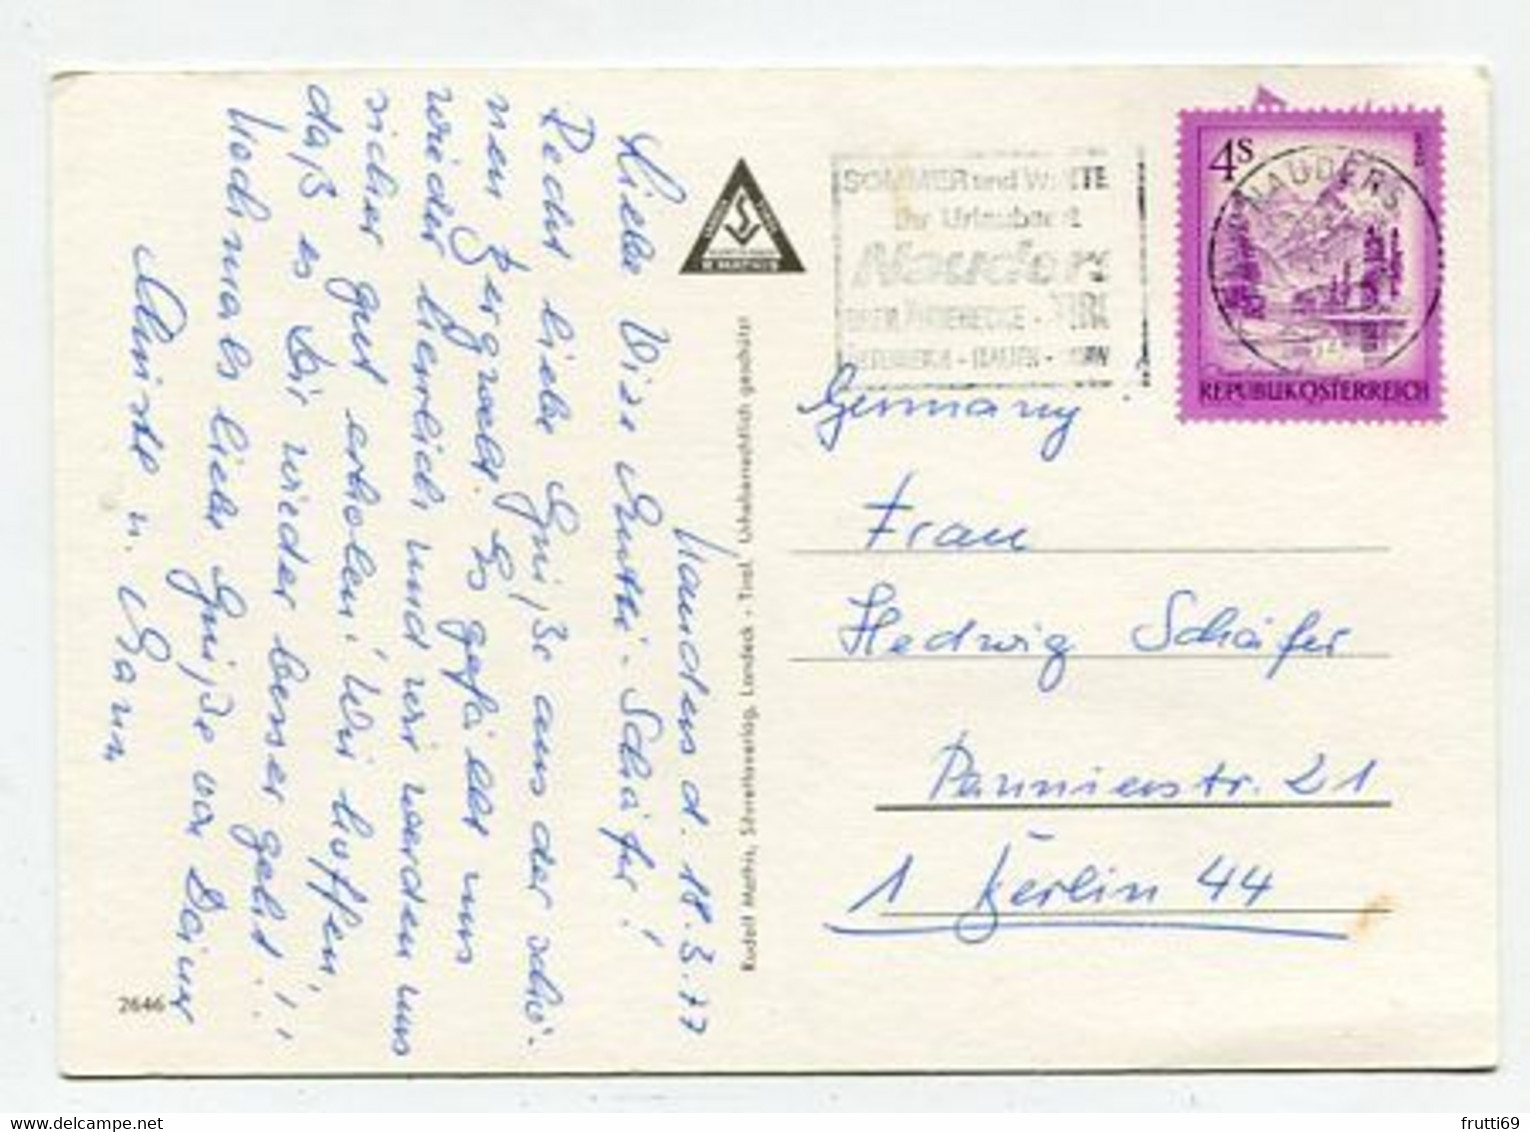 Nauders d. 18.3.77
Liebe Vize Mutti-Schäfer!
Recht liebe Grüße aus der schö-
nen Bergwelt. Es gefällt uns
wieder herrlich und wir werden uns
sicher gut erholen! Wir hoffen,
daß es Dir wieder besser geht!!!
Nochmals liebe Grüße von Deiner
Christe u. Mann
2646
Rudolf Mathis, Silvrettaverlag, Landeck - Tirol. Urheberrechtlich geschützt
R. MATHIS
SOMMER und WINTE
Ihr Urlaubsort
Nauders
DREILÄNDERECKE - TIROL
ÖSTERREICH - ITALIEN -
4S
NAUDERS
REPUBLIK ÖSTERREICH
Germany
Frau
Hedwig Schäfer
Pannierstr. 21
1 Berlin 44
frutti69